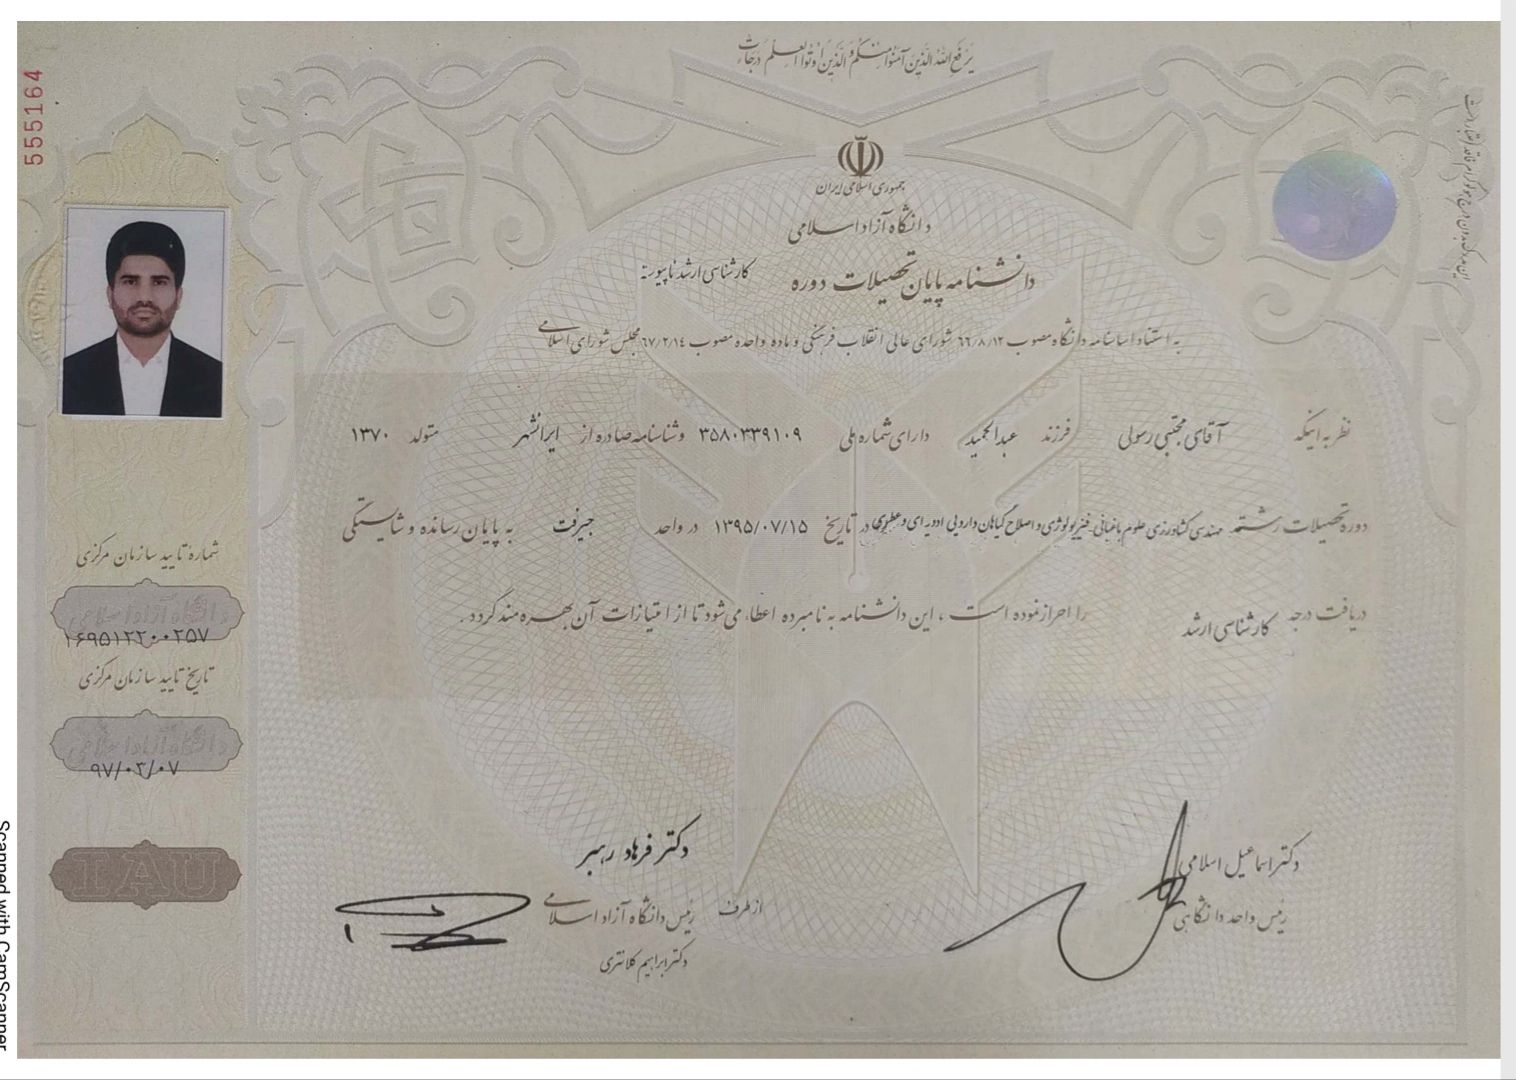 یرفع الله الذین آمنوا منکم و الذین اوتوا العلم درجات
555164
جمهوری اسلامی ایران
دانشگاه آزاد اسلامی
دانشنامه پایان تحصیلات دوره کارشناسی ارشد ناپیوسته
به استناد اساسنامه دانشگاه مصوب ٦٦/٨/١٢ شورای عالی انقلاب فرهنگی و ماده واحده مصوب ٦٧/٢/١٤ مجلس شورای اسلامی
نظر به اینکه آقای مجتبی رسولی فرزند عبدالحمید دارای شماره ملی ۳۵۸۰۳۳۹۱۰۹ و شناسنامه صادره از ایرانشهر متولد ۱۳۷۰
دوره تحصیلات رشته مهندسی کشاورزی علوم باغبانی-فیزیولوژی و اصلاح گیاهان دارویی ادویه ای و عطری در تاریخ ۱۳۹۵/۰۷/۱۵ در واحد جیرفت به پایان رسانده و شایستگی
دریافت درجه کارشناسی ارشد را احراز نموده است ، این دانشنامه به نامبرده اعطاء می شود تا از امتیازات آن بهره مند گردد .
شماره تایید سازمان مرکزی
دانشگاه آزاد اسلامی
۱۶۹۵۱۲۲۰۰۲۵۷
تاریخ تایید سازمان مرکزی
دانشگاه آزاد اسلامی
۹۷/۰۳/۰۷
IAU
دکتر اسماعیل اسلامی
رئیس واحد دانشگاهی
دکتر فرهاد رهبر
از طرف رئیس دانشگاه آزاد اسلامی
دکتر ابراهیم کلانتری
Scanned with CamScanner